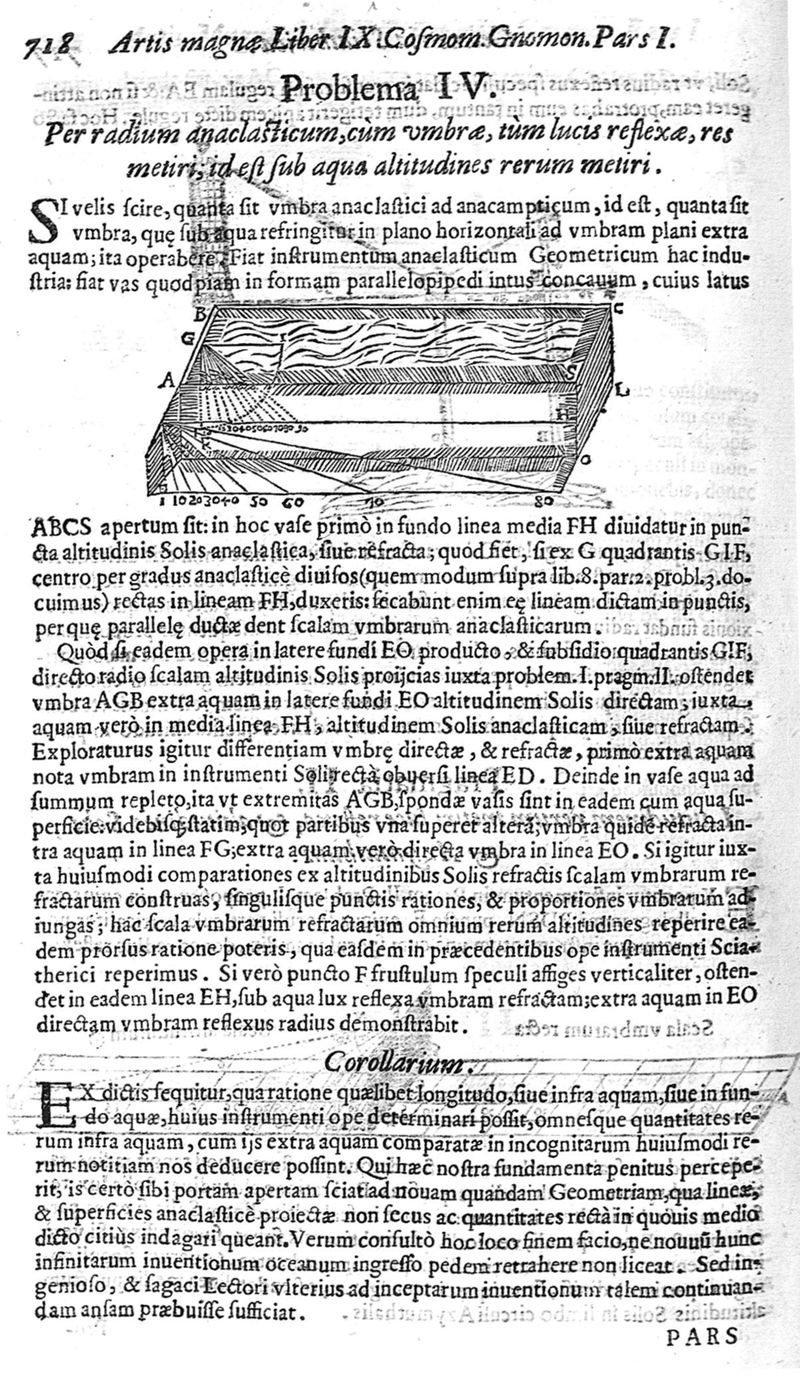 718 Artis magnæ Liber IX. Cosmom. Gnomon. Pars I.
Problema IV.
Per radium anaclasticum, cùm vmbræ, tùm lucis reflexæ, res
metiri; id est sub aqua altitudines rerum metiri.
SI velis scire, quanta sit vmbra anaclastici ad anacampticum, id est, quanta sit
vmbra, quę sub aqua refringitur in plano horizontali ad vmbram plani extra
aquam; ita operabere. Fiat instrumentum anaclasticum Geometricum hac indu-
stria: fiat vas quodpiam in formam parallelopipedi intus concauum, cuius latus
B C
G I
A S
L
H
10 20 30 40 50 60 70 80 90
O
1 10 20 30 40 50 60 70 80
ABCS apertum sit: in hoc vase primò in fundo linea media FH diuidatur in pun-
cta altitudinis Solis anaclastica, siue refracta; quod fiet, si ex G quadrantis GIF,
centro per gradus anaclasticè diuisos (quem modum supra lib. 8. par. 2. probl. 3. do-
cuimus) rectas in lineam FH, duxeris: secabunt enim eę lineam dictam in punctis,
per quę parallelę ductæ dent scalam vmbrarum anaclasticarum.
Quòd si eadem opera in latere fundi EO producto, & subsidio quadrantis GIF,
directo radio scalam altitudinis Solis proijcias iuxta problem. I. pragm. II. ostendet
vmbra AGB extra aquam in latere fundi EO altitudinem Solis directam; iuxta
aquam verò in media linea FH, altitudinem Solis anaclasticam, siue refractam.
Exploraturus igitur differentiam vmbrę directæ, & refractæ, primò extra aquam
nota vmbram in instrumenti Soli rectà obuersi linea ED. Deinde in vase aqua ad
summum repleto, ita vt extremitas AGB, spondæ vasis sint in eadem cum aqua su-
perficie: videbisq; statim, quot partibus vna superet alterā; vmbra quidē refracta in-
tra aquam in linea FG; extra aquam verò directa vmbra in linea EO. Si igitur iux-
ta huiusmodi comparationes ex altitudinibus Solis refractis scalam vmbrarum re-
fractarum construas, singulisque punctis rationes, & proportiones vmbrarum ad-
iungas; hac scala vmbrarum refractarum omnium rerum altitudines reperire ea-
dem prorsus ratione poteris, qua easdem in præcedentibus ope instrumenti Scia-
therici reperimus. Si verò puncto F frustulum speculi affiges verticaliter, osten-
det in eadem linea EH, sub aqua lux reflexa vmbram refractam; extra aquam in EO
directam vmbram reflexus radius demonstrabit.
Corollarium.
EX dictis sequitur, qua ratione quælibet longitudo, siue infra aquam, siue in fun-
do aquæ, huius instrumenti ope determinari possit, omnesque quantitates re-
rum infra aquam, cum ijs extra aquam comparatæ in incognitarum huiusmodi re-
rum notitiam nos deducere possint. Qui hæc nostra fundamenta penitus percepe-
rit, is certò sibi portam apertam sciat ad nouam quandam Geometriam, qua lineæ,
& superficies anaclasticè proiectæ non secus ac quantitates rectà in quouis medio
dicto citiùs indagari queant. Verum consultò hoc loco finem facio, ne nouuū hunc
infinitarum inuentionum oceanum ingresso pedem retrahere non liceat. Sed in-
genioso, & sagaci Lectori vlterius ad inceptarum inuentionum talem continuan-
dam ansam præbuisse sufficiat.
PARS